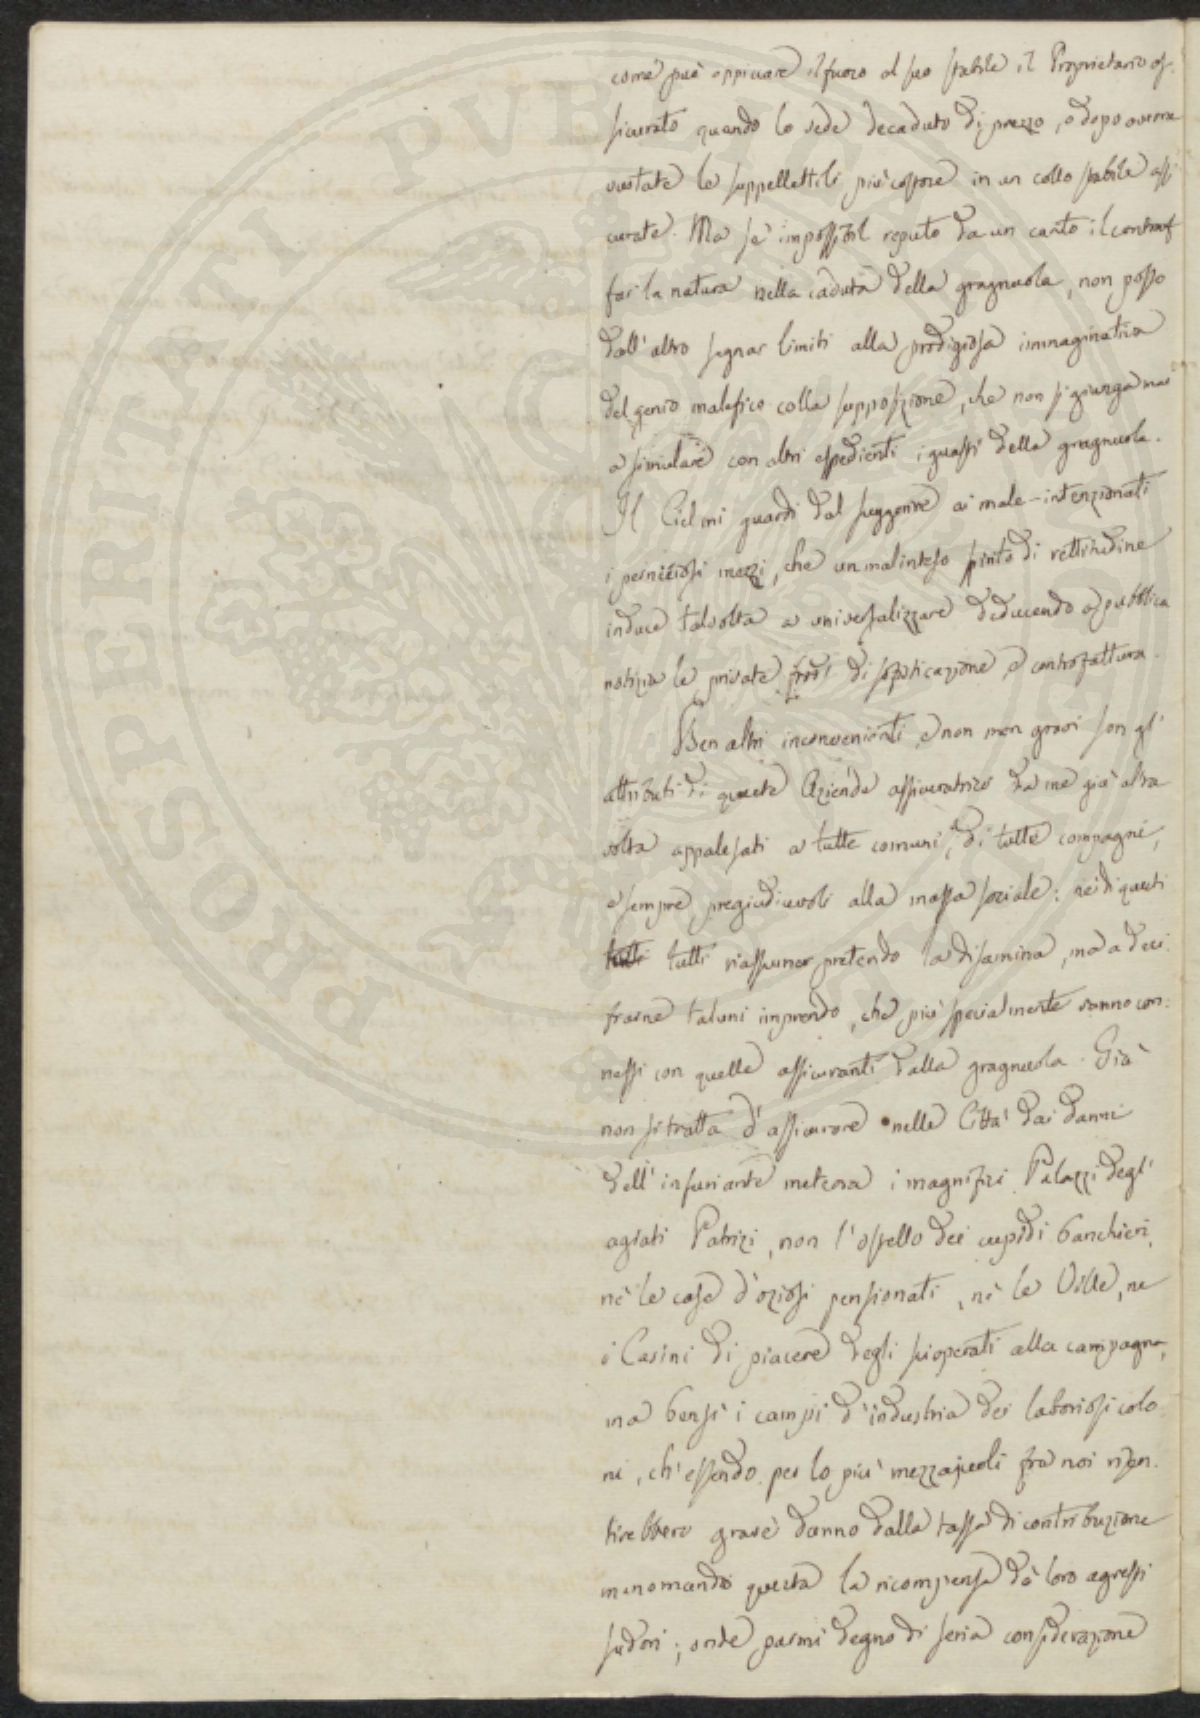 come può appiccare il fuoco al suo stabile il Proprietario as-
sicurato quando lo vede decaduto di prezzo, o dopo avorne
vuotate le suppellettili più costose in un collo stabile assi
curate. Ma se impossibil reputo da un canto il contraf
far la natura nella caduta della gragnuola, non posso
dall'altro segnar limiti alla prodigiosa immaginativa
del genio malefico colla supposizione, che non si giunga mai
a simulare con altri espedienti i guasti della gragnuola.
Il Ciel mi guardi dal suggerire ai male-intenzionati
i perniciosi mezzi, che un malinteso spirito di rettitudine
induce talvolta a universalizzare deducendo a pubblica
notizia le private frodi di sofisticazione e controfattura.
Ben altri inconvenienti, e non men gravi son gl'
attributi di queste Aziende assicuratrici da me già altra
volta appalesati a tutte comuni, di tutte compagni,
e sempre pregiudicevoli alla massa sociale: nè di questi
tutti tutti riassumer pretendo la disamina, ma a deci
frarne taluni imprendo, che più specialmente vanno con:
nessi con quelle assicuranti dalla gragnuola. Già
non si tratta d'assicurare nelle Città dai danni
dell'infuriante meteora i magnifici Palazzi degl'
agiati Patrizi, non l'ostello dei cupidi banchieri,
nè le case d'oziosi pensionati, nè le Ville, ne
i Casini di piacere degli scioperati alla campagna,
ma bensì i campi d'industria dei laboriosi colo
ni, ch'essendo per lo più mezzajuoli fra noi risen.
tirebbero grave danno dalla tassa di contribuzione
menomando questa la ricompensa dà loro agresti
sudori; onde parmi degno di seria considerazione
PROSPERITATI PVBLICAE